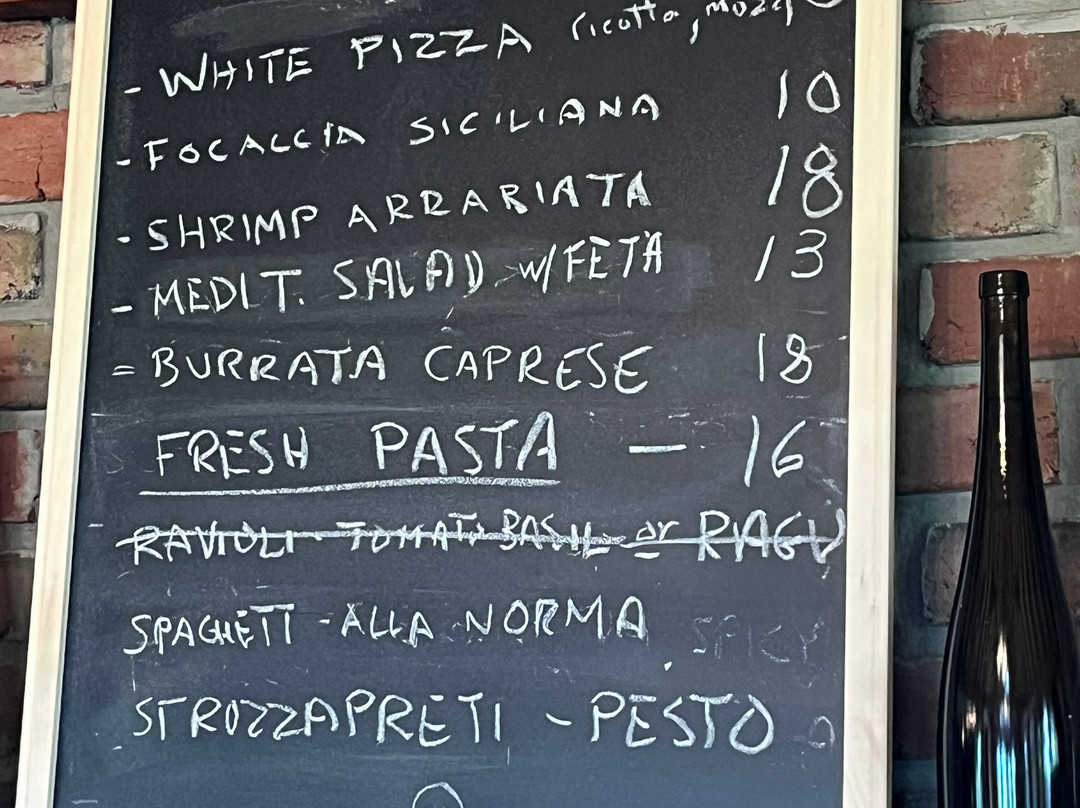 - WHITE PIZZA ricotta, mozz
- FOCACCIA SICILIANA 10
- SHRIMP ARRARIATA 18
- MEDIT. SALAD w/FETA 13
= BURRATA CAPRESE 18
FRESH PASTA — 16
RAVIOLI - TOMATO BASIL or RAGU
SPAGHETTI - ALLA NORMA SPICY
STROZZAPRETI - PESTO